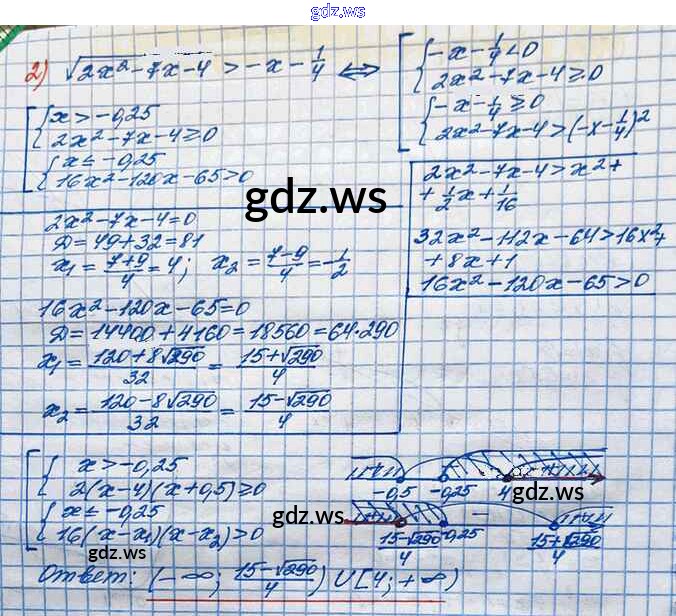 gdz.ws
2) √(2x²-7x-4) > -x - 1/4 ⇔ [ { -x - 1/4 < 0
2x²-7x-4 ≥ 0
{ -x - 1/4 ≥ 0
2x²-7x-4 > (-x - 1/4)²
[ { x > -0,25
2x²-7x-4 ≥ 0
{ x ≤ -0,25
16x²-120x-65 > 0
2x²-7x-4 > x² +
+ 1/2 x + 1/16
32x²-112x-64 > 16x² +
+ 8x + 1
16x²-120x-65 > 0
gdz.ws
2x²-7x-4=0
D = 49+32 = 81
x₁ = (7+9)/4 = 4; x₂ = (7-9)/4 = -1/2
16x²-120x-65=0
D = 14400+4160 = 18560 = 64·290
x₁ = (120+8√290)/32 = (15+√290)/4
x₂ = (120-8√290)/32 = (15-√290)/4
[ { x > -0,25
2(x-4)(x+0,5) ≥ 0
{ x ≤ -0,25
16(x-x₁)(x-x₂) > 0
-0,5 -0,25 4
gdz.ws
gdz.ws
(15-√290)/4 -0,25 (15+√290)/4
gdz.ws
Ответ: (-∞; (15-√290)/4) ∪ [4; +∞)
gdz.ws